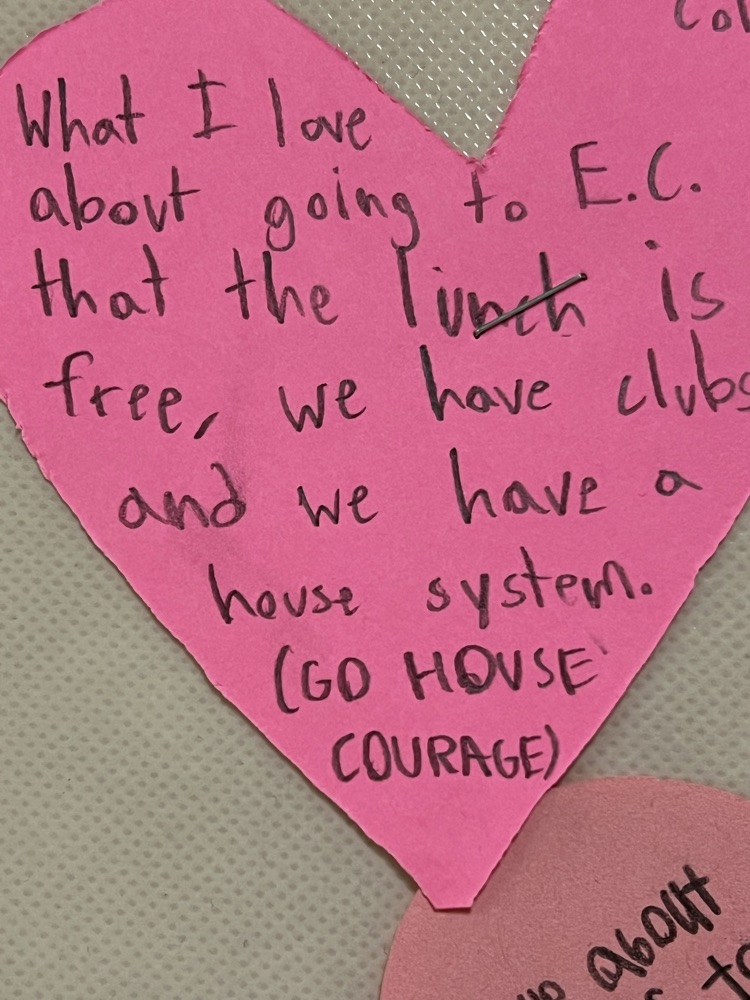 What I love
about going to E.C.
that the lunch is
free, we have clubs
and we have a
house system.
(GO HOUSE
COURAGE)
about